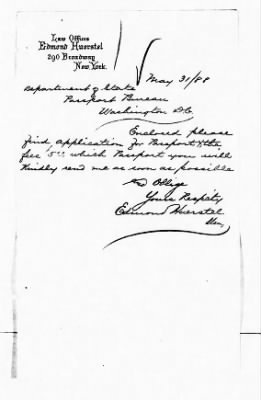 Law Offices
Edmond Huerstel
290 Broadway
New York.
May 31/88
Department of State
Passport Bureau
Washington D.C.
Enclosed please
find application for Passport & the
fee 5.00 which Passport you will
Kindly send me as soon as possible
and Oblige
Yours Respctly
Edmond Huerstel